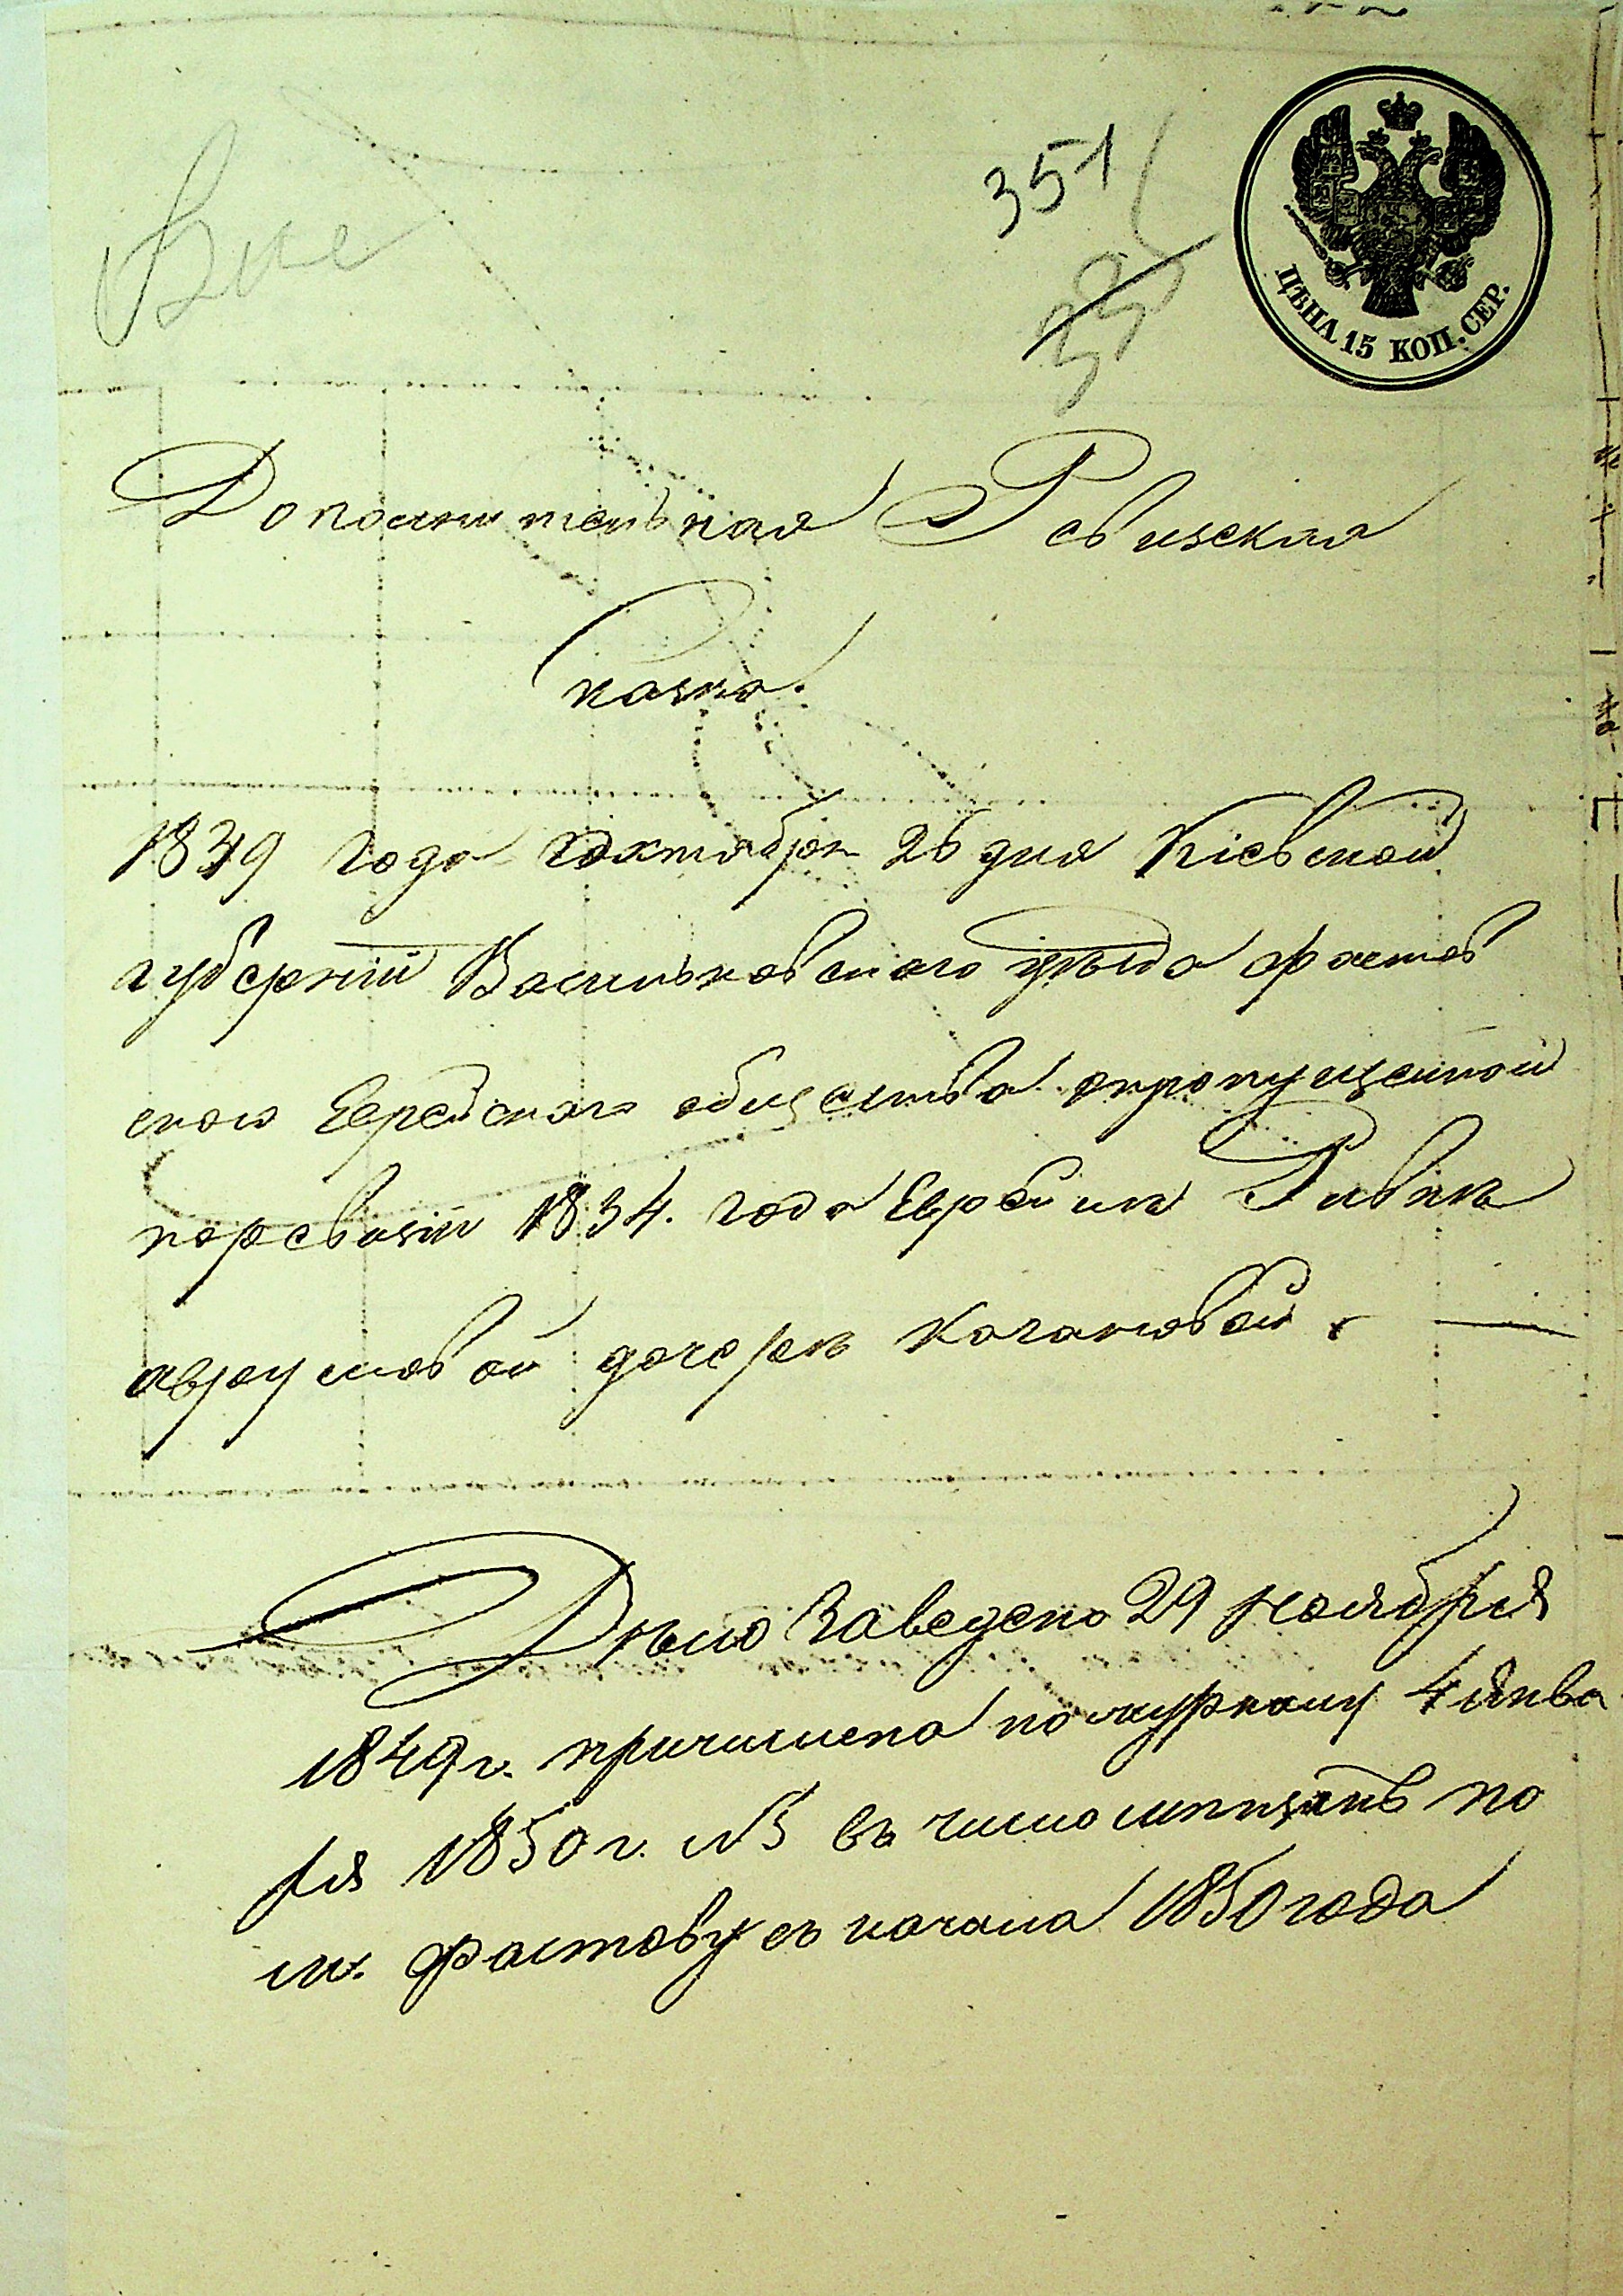 351
ЦѢНА 15 КОП. СЕР.
Дополнительная Ревизская
сказка.
1849 года октября 26 дня Кіевской
губерніи Васильковскаго уѣзда Фастов
скаго Еврейскаго общества опропущенной
поревизіи 1834. года Еврейкѣ Ривкѣ
Аврумовой дочерѣ Когановой. —
Дѣло Заведено 29 Ноября
1849 г. причислена по журналу 4 Янва
ря 1850 г. №5 въ число мѣщанъ по
м. Фастову съ начала 1850 года